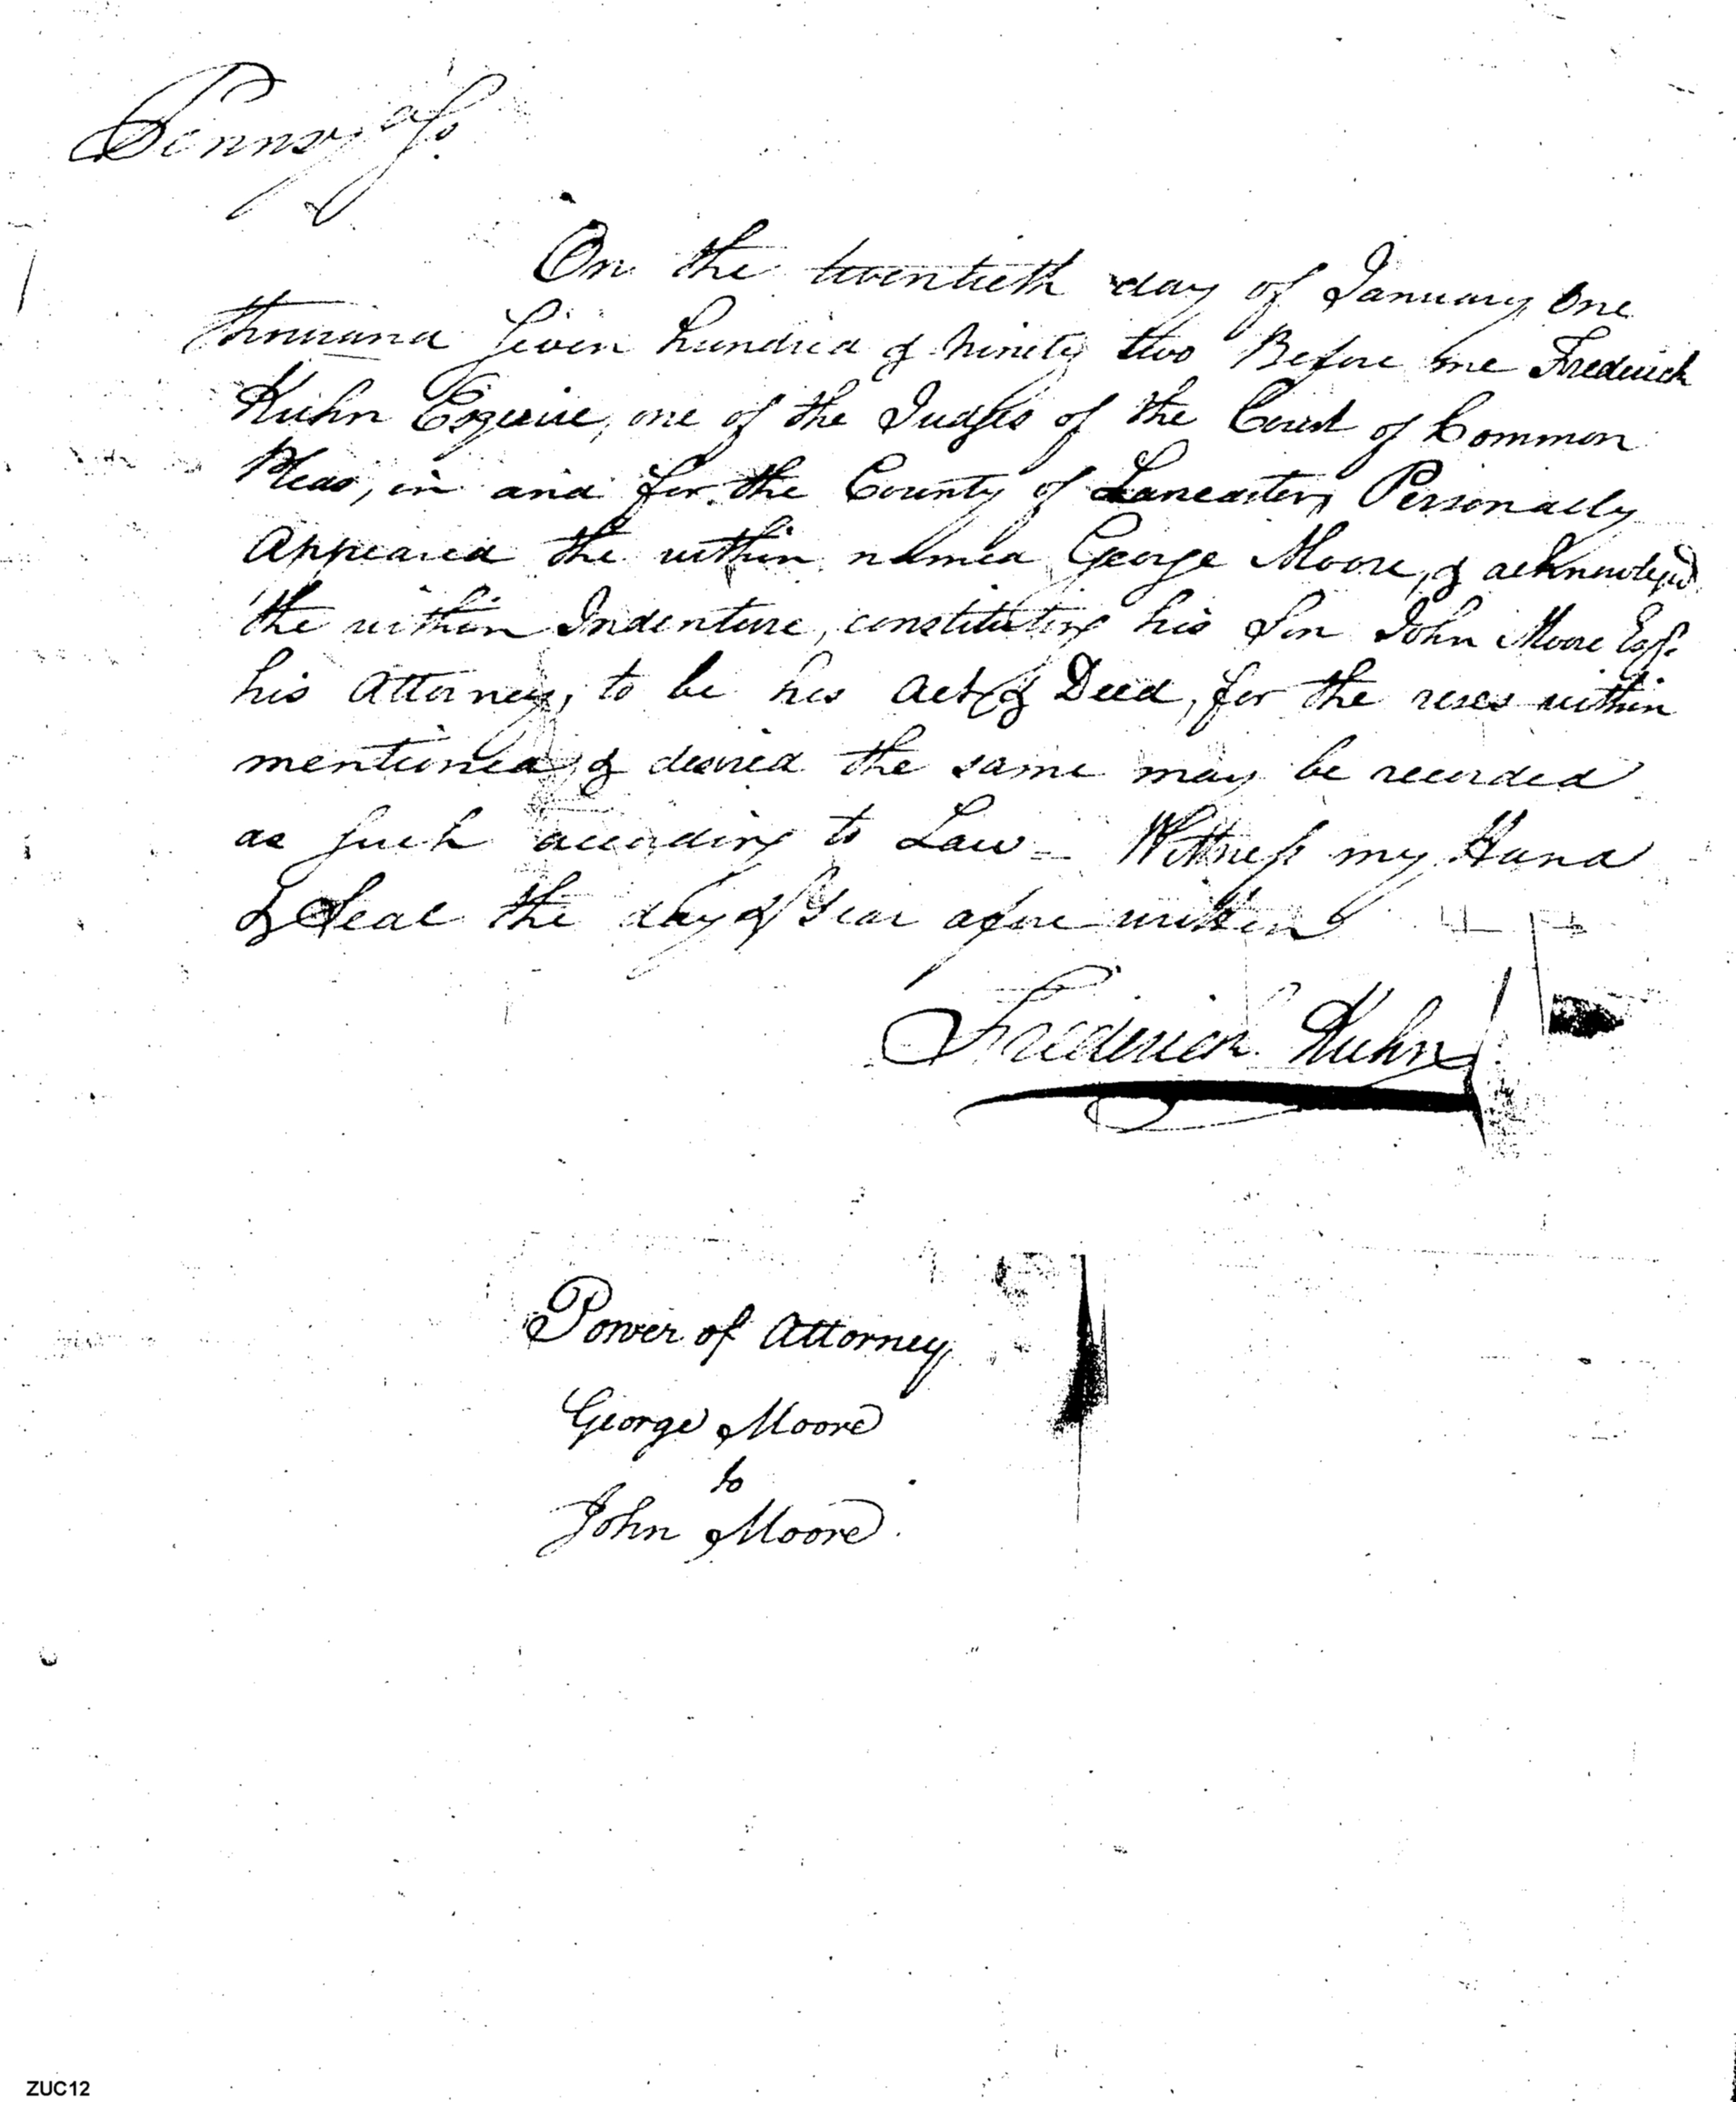 Pennsya Ss.
On the twentieth day of January, one
thousand Seven hundred & ninety two Before me Frederick
Kuhn Esquire, one of the Judges of the Court of Common
Pleas, in and for the County of Lancaster, Personally
Appeared the within named George Moore, & acknowledged
the within Indenture, constituting his Son John Moore Esqr.
his Attorney, to be his Act & Deed, for the uses within
mentioned, & desired the same may be recorded
as such according to Law - Wittness my Hand
& Seal the day & Year afore written
Frederick Kuhn
Power of Attorney
George Moore
to
John Moore.
ZUC12